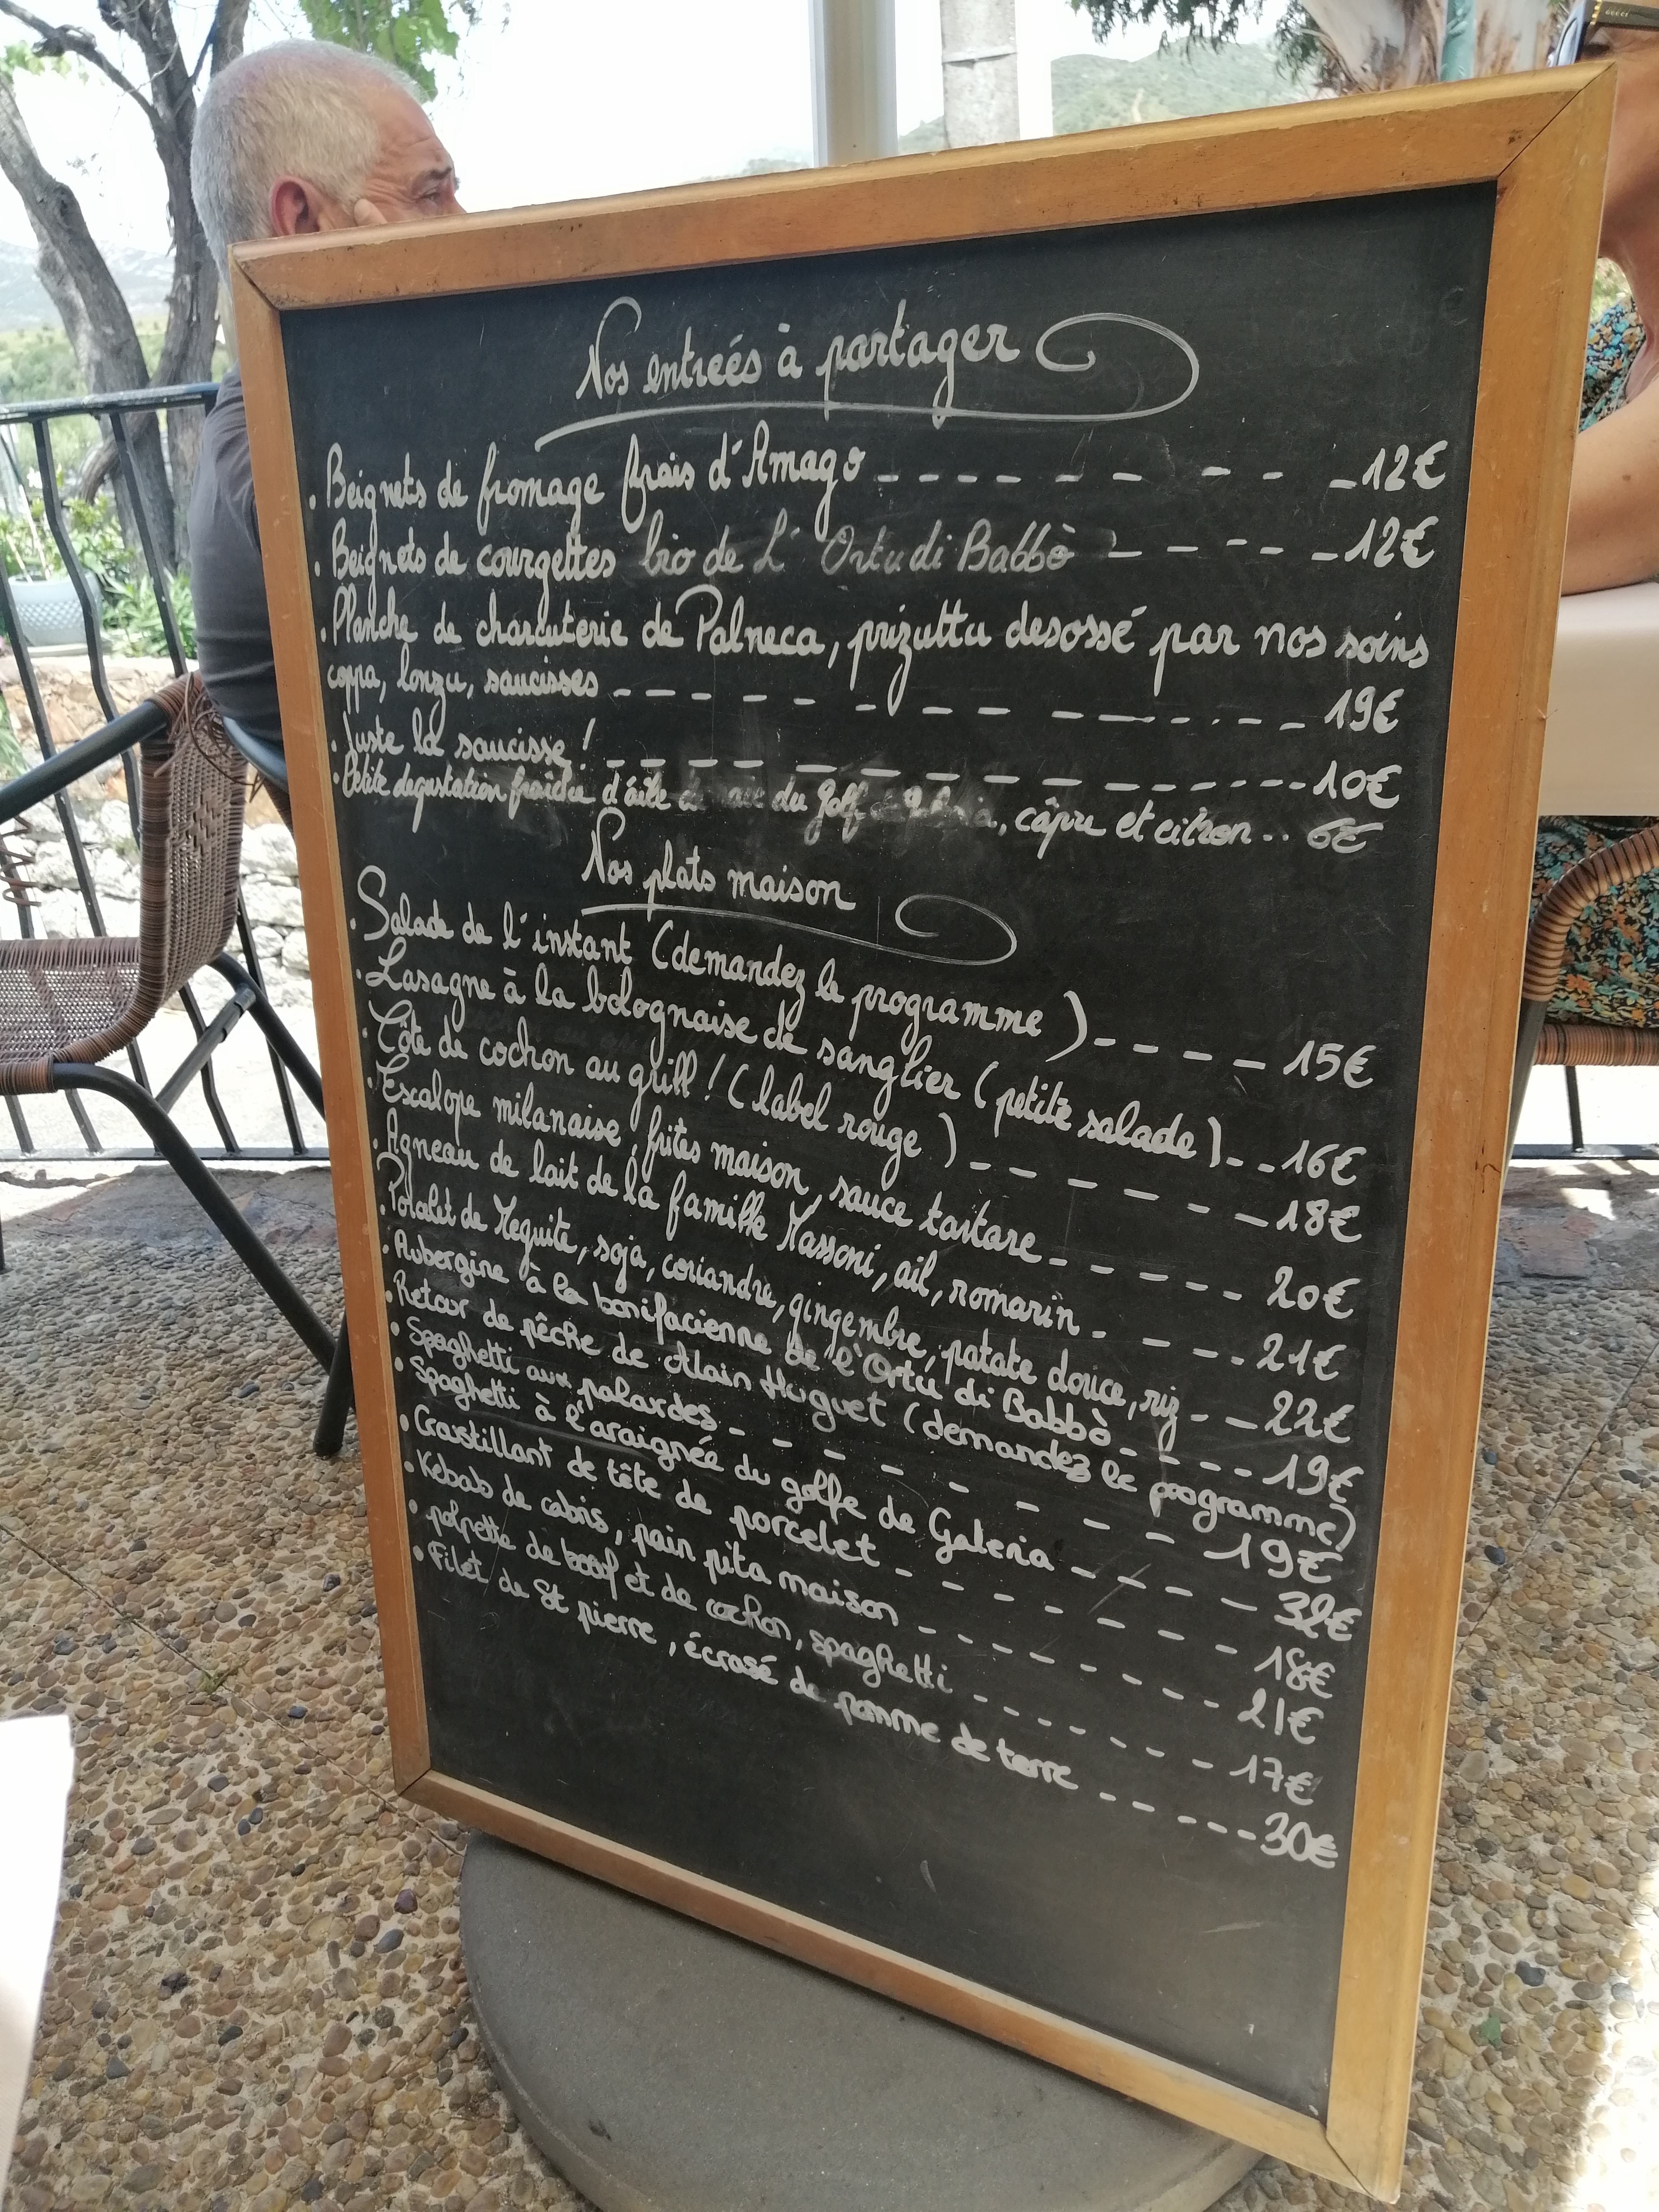 Nos entrées à partager
. Beignets de fromage frais d'Amago ---------12€
. Beignets de courgettes bio de L' Ortu di Babbò ------12€
. Planche de charcuterie de Palneca, prizuttu desossé par nos soins
coppa, lonzu, saucisses ------------19€
. Juste la saucisse! ------------10€
. Petite degustation fraîche d'aile du golf, câpre et citron .. 6€
Nos plats maison
. Salade de l'instant (demandez le programme) -----15€
. Lasagne à la bolognaise de sanglier (petite salade) --16€
. Côte de cochon au grill! (label rouge) ------18€
. Escalope milanaise, frites maison, sauce tartare ----- 20€
. Agneau de lait de la famille Massoni, ail, romarin ----- 21€
. Poalet de Mequite, soja, coriandre, gingembre, patate douce, riz --22€
. Aubergine à la bonifacienne de l'Ortu di Babbò ----19€
. Retour de pêche de Alain Huguet (demandez le programme)
. Spaghetti aux palardes ---------19€
. Spaghetti à l'araignée du golfe de Galeria ----- 32€
. Croustillant de tête de porcelet -------- 18€
. Kebab de cabris, pain pita maison -------- 21€
. polpette de boeuf et de cochon, spaghetti ------- 17€
. Filet de St pierre, écrasé de pomme de terre ------30€